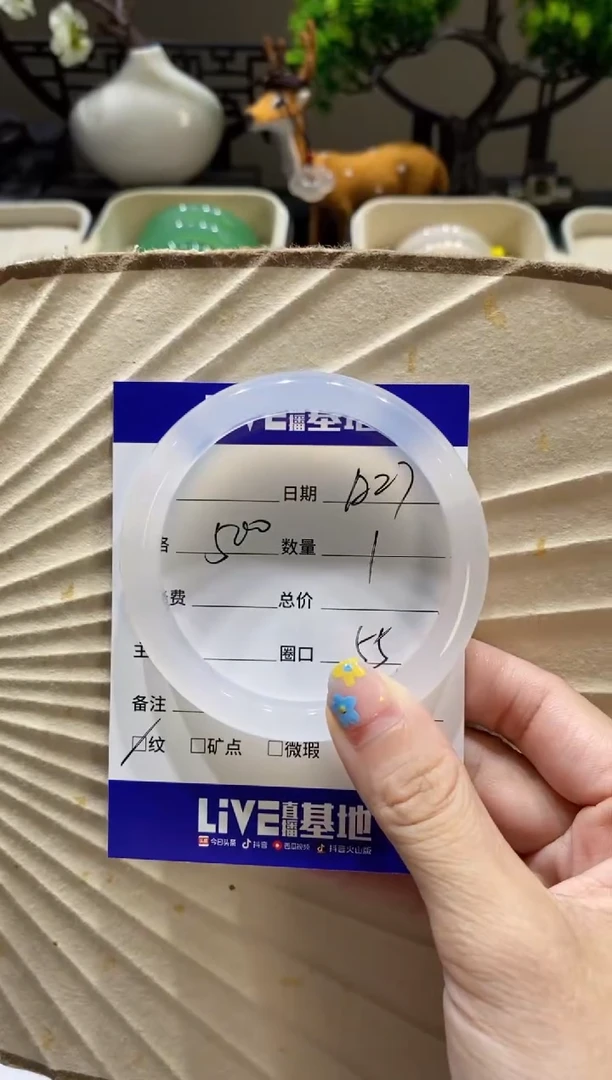 LiVE直播基地
日期 1227
格 500 数量 1
费 总价
主 圈口 55
备注
纹 □矿点 □微瑕
LiVE直播基地
头条 今日头条 抖音 西瓜视频 抖音火山版